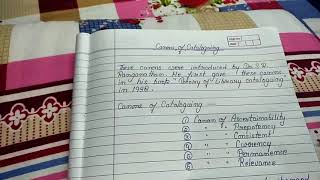 Canons of Cataloging
These canons were introduced by Dr. S.R.
Ranganathan. He first gave these canons
in his book "theory of library cataloging
in 1938.
Canons of Cataloging
① Canon of Ascertainability
② " " Prepotency
③ " " Consistent
④ " " Currency
⑤ " " Permanence
⑥ " " Relevance